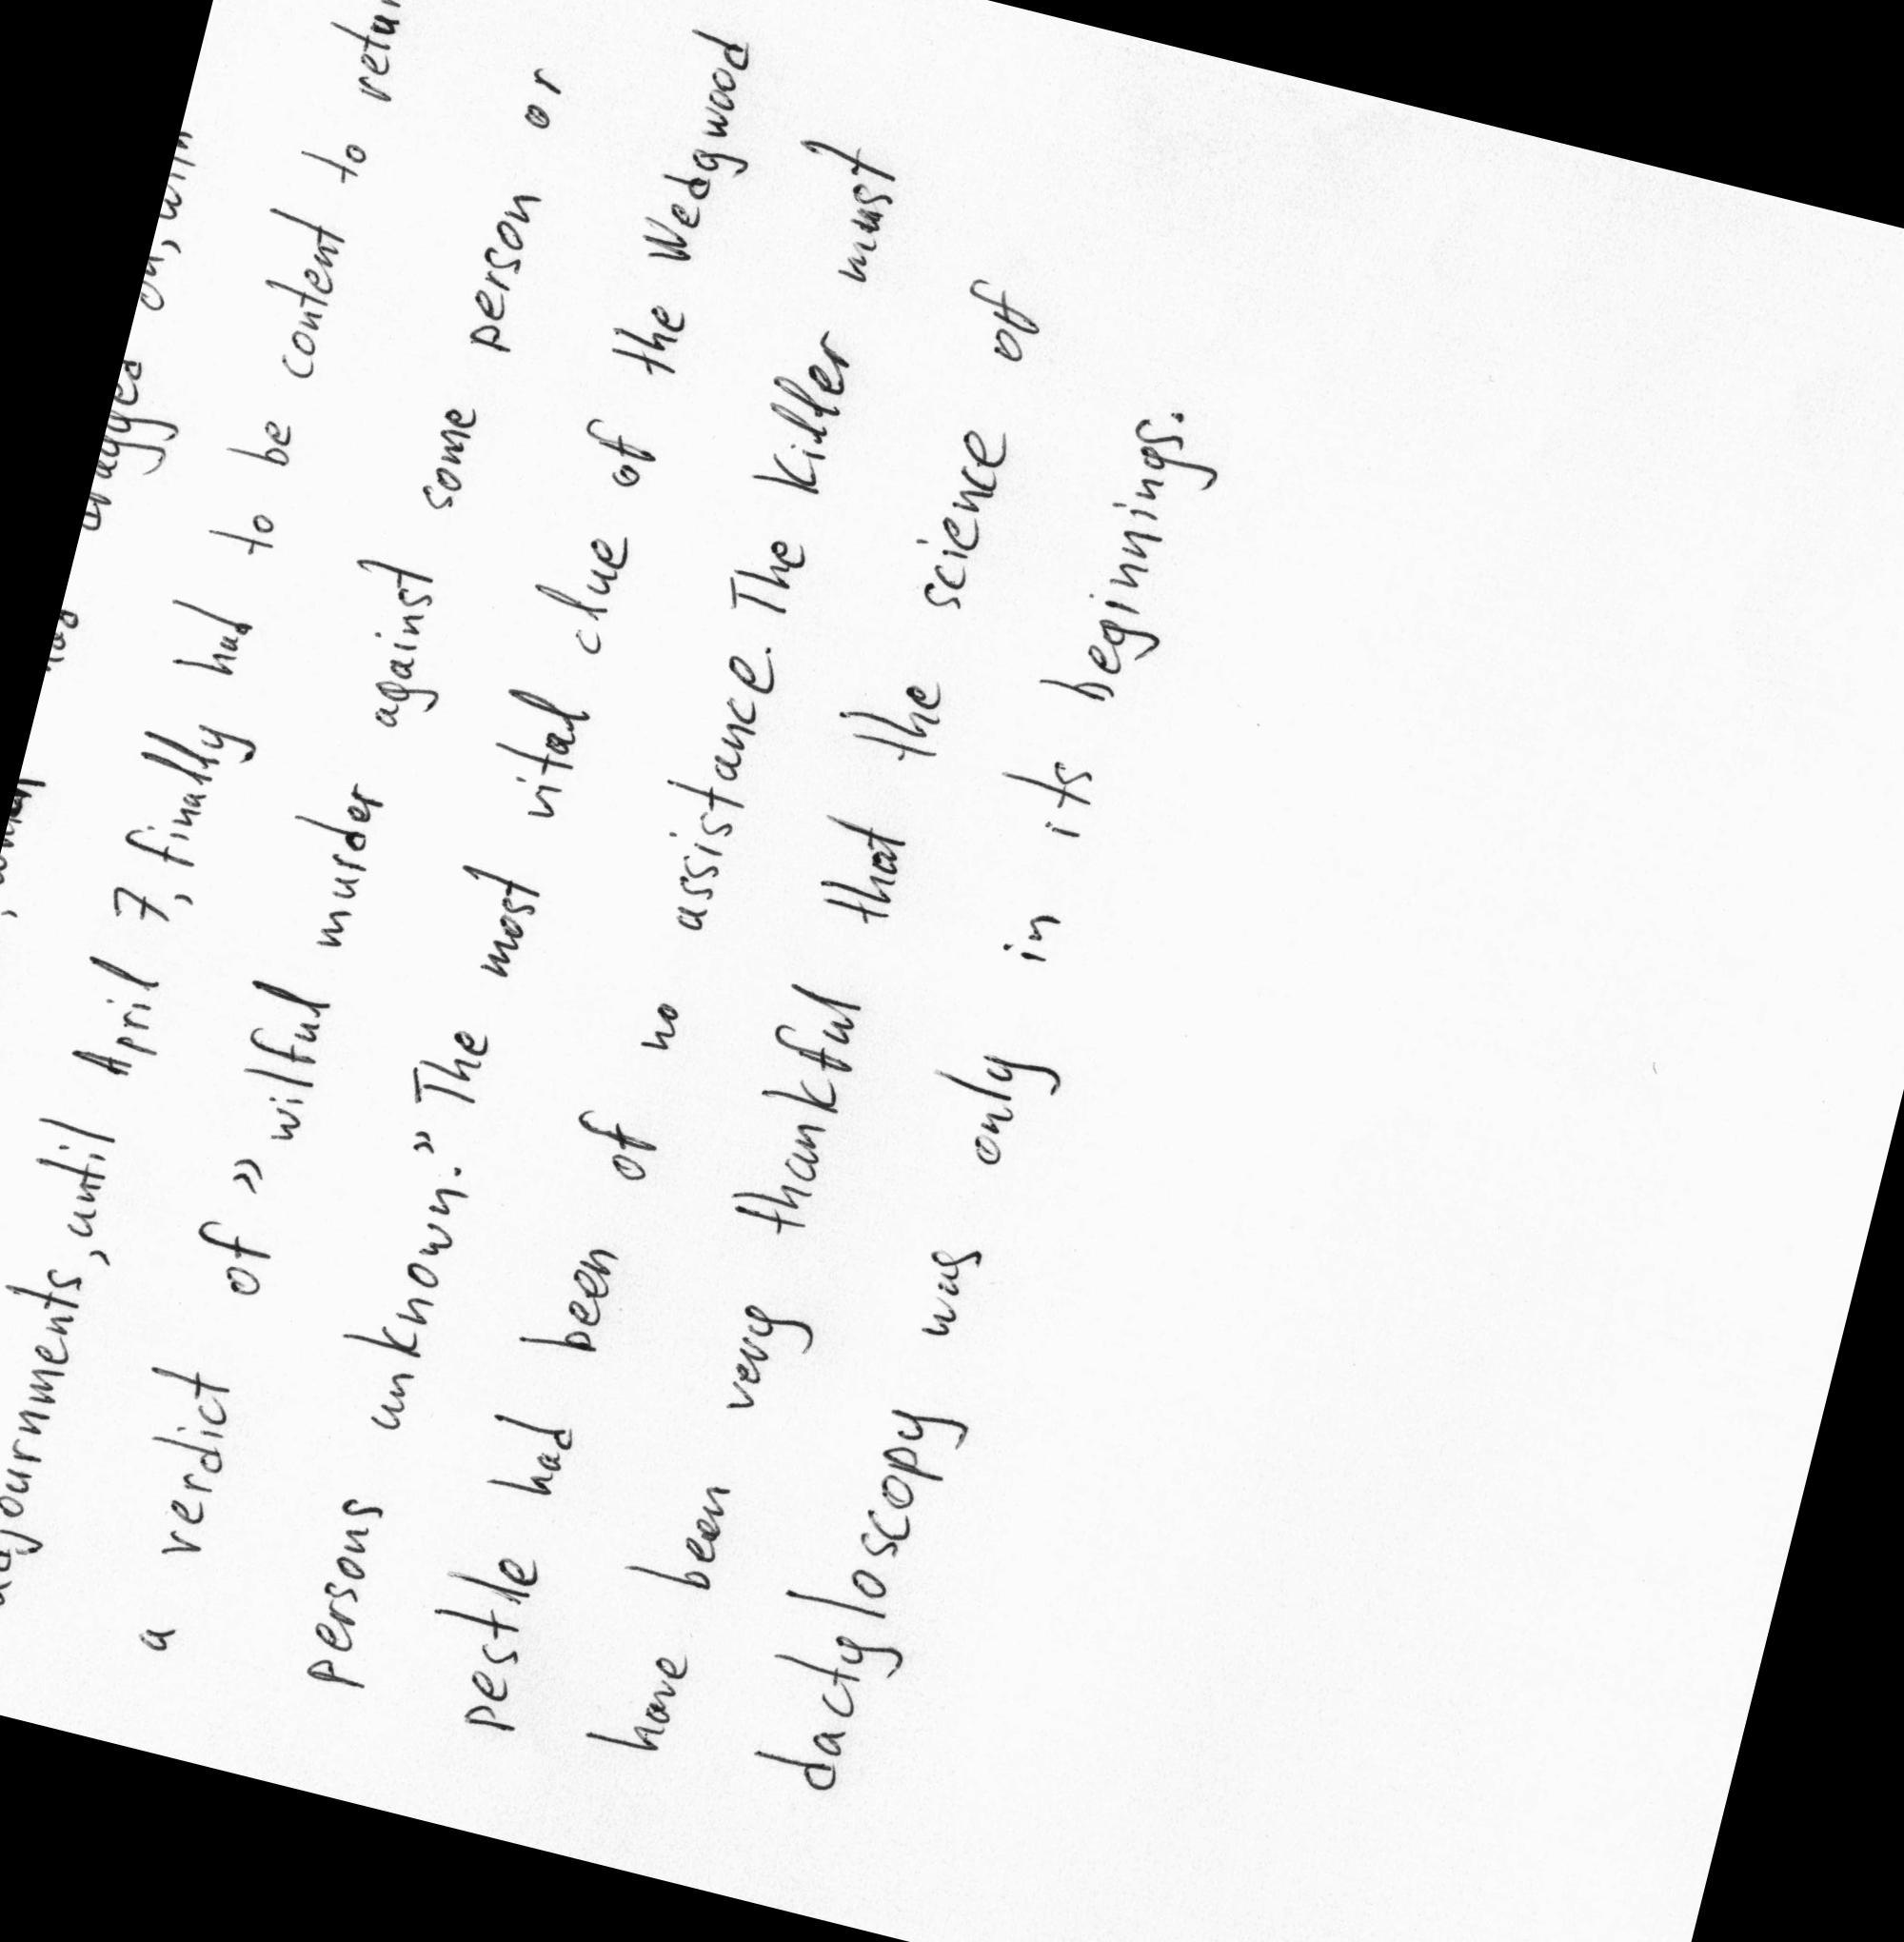 dragged on, with
adjournments, until April 7, finally had to be content to
a verdict of "wilful murder against some person or
persons unknown." The most vital clue of the Wedgwood
pestle had been of no assistance. The killer must
have been very thankful that the science of
dactyloscopy was only in its beginnings.